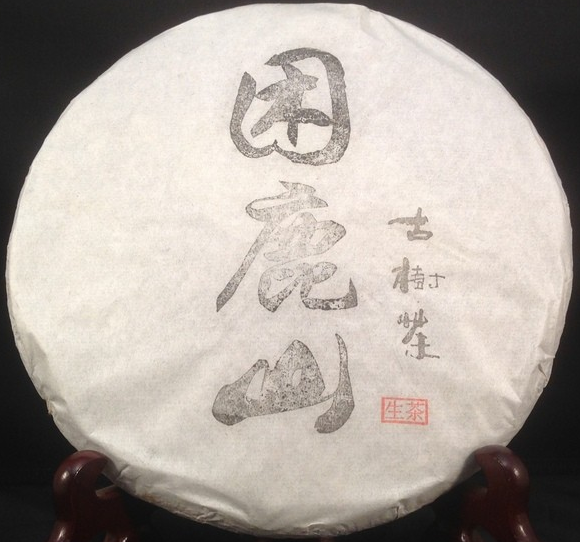 困鹿山
古樹茶
生茶